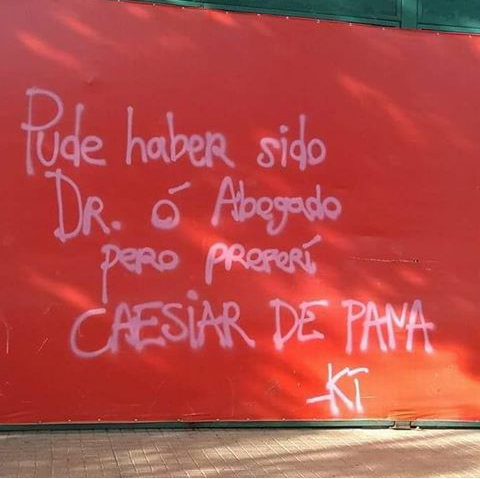 Pude haber sido
DR. ó Abogado
pero preferí
CAESIAR DE PANA
_KT